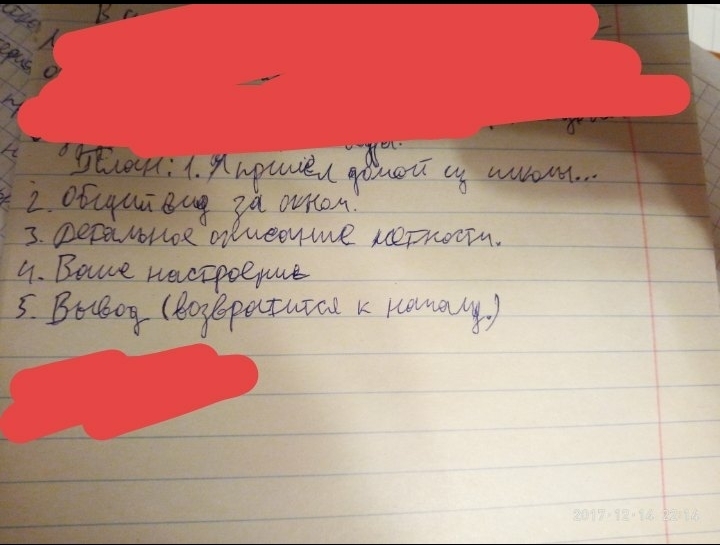 В
План: 1. Я пришёл домой из школы...
2. Общий вид за окном.
3. Детальное описание местности.
4. Ваше настроение
5. Вывод (возвратится к началу.)
2017-12-14 22:14